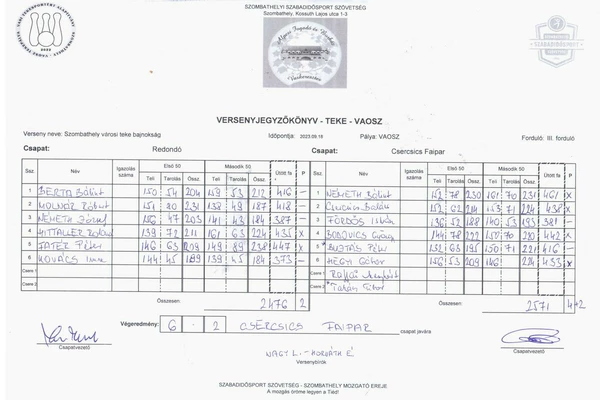 SZOMBATHELYI SZABADIDŐSPORT SZÖVETSÉG
Szombathely, Kossuth Lajos utca 1-3
SZABADIDŐSPORT
VERSENYJEGYZŐKÖNYV - TEKE - VAOSZ
Verseny neve: Szombathely városi teke bajnokság Időpontja: 2023.09.18 Pálya: VAOSZ Forduló: III. forduló
Csapat: Redondó Csapat: Csercsics Faipar
Ssz. Név Igazolás száma Első 50 Második 50 Ütött fa P Ssz. Név Igazolás száma Első 50 Második 50 Ütött fa P
Teli Tarolás Össz. Teli Tarolás Össz. Teli Tarolás Össz. Teli Tarolás Össz.
1 BERTA Bálint 150 54 204 159 53 212 416 — 1 NÉMETH Bálint 152 78 230 161 70 231 461 x
2 MOLNÁR Róbert 151 80 231 138 49 187 418 — 2 Balázs 152 62 214 153 71 224 438 x
3 NÉMETH József 156 47 203 141 43 184 387 — 3 FÖRDŐS István 136 52 188 140 53 193 381 —
4 139 72 211 161 63 224 435 x 4 144 78 222 150 70 220 442 x
5 JÁTER Péter 146 63 209 149 89 238 447 x 5 BUJTÁS Péter 132 63 195 150 71 221 416 —
6 KOVÁCS Imre 144 45 189 139 45 184 373 — 6 HEGY Gábor 156 53 209 146 224 433 x
Csere 1 Csere 1 Rajjai
Csere 2 Csere 2 Gábor
Összesen: 2476 2 Összesen: 2571 4+2
Végeredmény: 6 - 2 CSERCSICS FAIPAR csapat javára
Csapatvezető Csapatvezető
NAGY L. - HORVÁTH É
Versenybírók
SZABADIDŐSPORT SZÖVETSÉG - SZOMBATHELY MOZGATÓ EREJE
A mozgás öröme legyen a Tiéd!